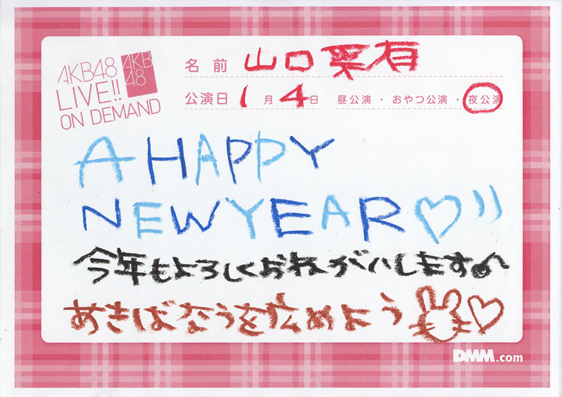 AKB48
LIVE!!
ON DEMAND
AKB
48
名前 山口菜有
公演日 1月4日 昼公演・おやつ公演・夜公演
A HAPPY
NEW YEAR♡
今年もよろしくおねがいします
あきばなうを広めよう♡
DMM.com